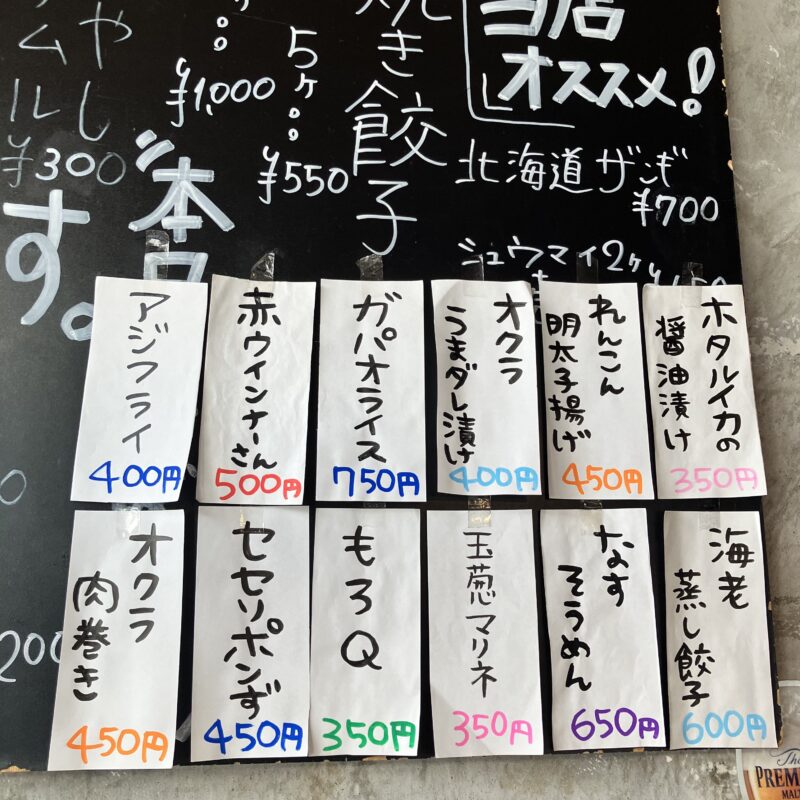 当店
オススメ!
北海道ザンギ
¥700
シュウマイ2ケ
焼き餃子
5ヶ
¥550
¥1,000
本日
やし
ムル
¥300
す。
ホタルイカの
醤油漬け
350円
れんこん
明太子揚げ
450円
オクラ
うまダレ漬け
400円
ガパオライス
750円
赤ウインナーさん
500円
アジフライ
400円
海老
蒸し餃子
600円
なす
そうめん
650円
玉葱マリネ
350円
もろQ
350円
セセリポンず
450円
オクラ
肉巻き
450円
The
PREM
MAL